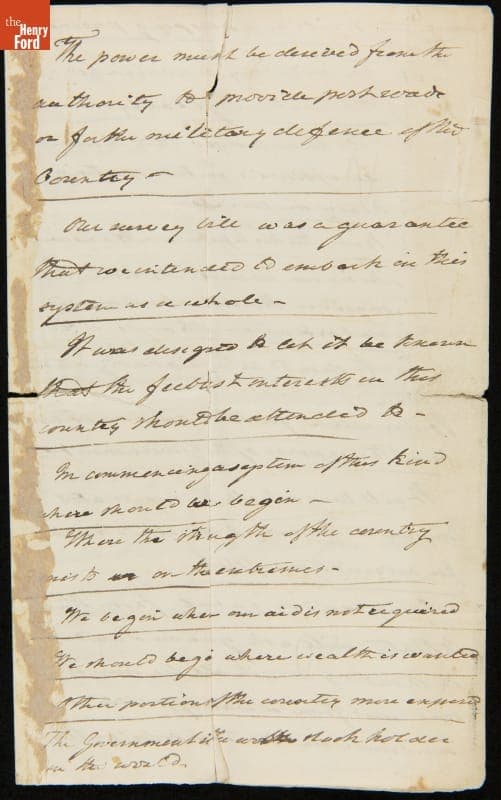 the
Henry
Ford
The power must be derived from the
authority to provide post roads
or for the military defence of the
Country -
Our survey bill was a guarantee
that we intended to embark in this
system as a whole -
It was designed to let it be known
that the feeblest interests in this
country should be attended to -
In commencing a system of this kind
where should we begin -
Where the strength of the country
exists or on the extremes -
We begin when our aid is not required
We should begin where wealth is wanted
Other portions of the country more exposed
The Government is a stock holder
in the world